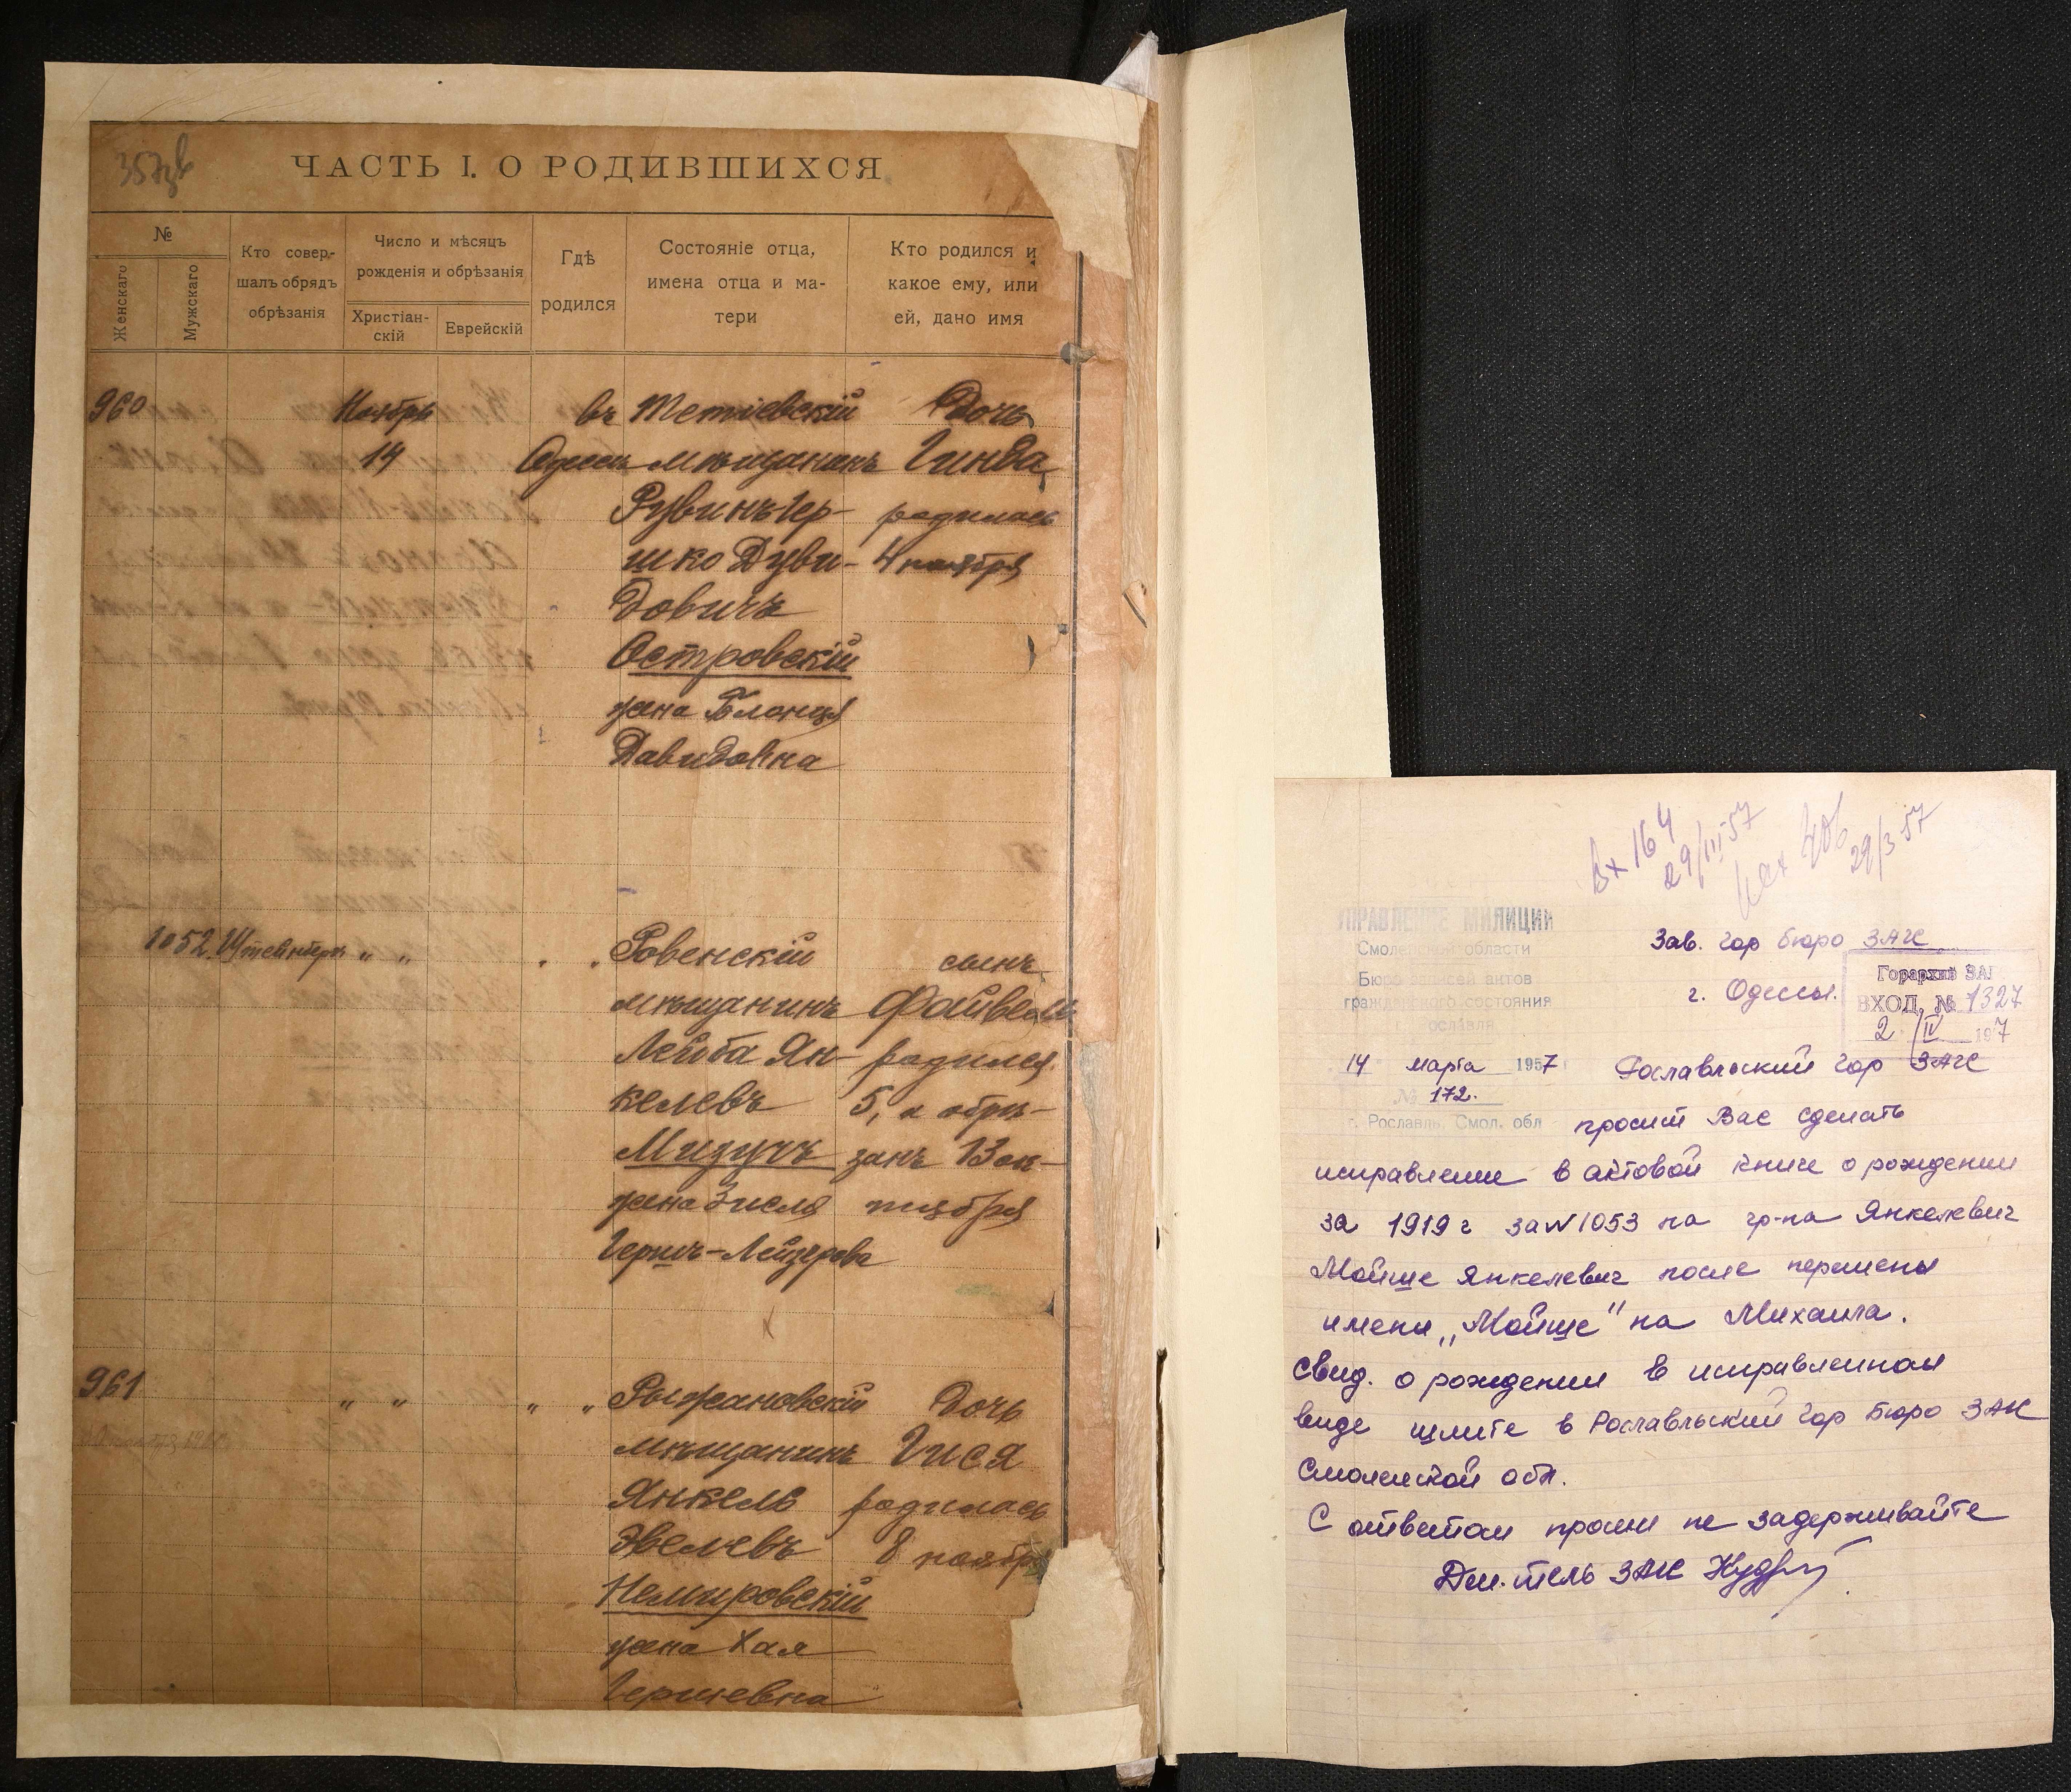 ЧАСТЬ I. О РОДИВШИХСЯ
№
Женскаго
Мужскаго
Кто совер-
шалъ обрядъ
обрѣзанія
Число и мѣсяцъ
рожденія и обрѣзанія
Христіан-
скій
Еврейскій
Гдѣ
родился
Состояніе отца,
имена отца и ма-
тери
Кто родился и
какое ему, или
ей, дано имя
960 Ноябрь въ Тетіевскій Дочь
14 Одессѣ мѣщанинъ Гинда
Рувинъ Гер- родилась
шко Дуви- 4 ноября
довичъ
Островскій
жена Бланця
Давидовна
1052 Штейнберъ " " Ровенскій сынъ
мѣщанинъ Файвель
Лейба Ян- родился
келевъ 5, а обрѣ-
Мизучъ занъ 13 ок-
жена Зисля тября
Гершъ-Лейзерова
961 " " " " Рыжановскій дочь
мѣщанинъ Гися
Янкель родилась
Эвелевъ 8 ноября
Немировскій
жена Хая
Гершевна
Вх 164
29/III-57
Исх 406
29/3 57
УПРАВЛЕНИЕ МИЛИЦИИ
Смоленской области
Бюро записей актов
гражданского состояния
14 марта 1957
№ 172.
г. Рославль, Смол. обл
Зав. гор бюро ЗАГС
г. Одессы.
Горархив ЗАГ
ВХОД. № 1327
2 / IV 197
Рославльский гор ЗАГС
просит Вас сделать
исправление в актовой книге о рождении
за 1919 г за N 1053 на гр-на Янкелевич
Мойше Янкелевич после перемены
имени „Мойше" на Михаила.
Свид. о рождении в исправленном
виде шлите в Рославльский гор бюро ЗАГС
Смоленской обл.
С ответом просим не задерживайте
ЗАГС